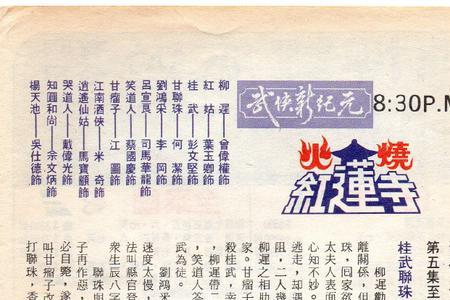 武俠新紀元
8:30P.M
火燒
紅蓮寺
柳 遲——曾偉權飾
紅 姑——葉玉卿飾
桂 武——彭文堅飾
甘聯珠——何 潔飾
劉鴻采——李 岡飾
呂宣良——司馬華龍飾
笑道人——蔡國慶飾
甘瘤子——江 圖飾
江南酒俠——米 奇飾
逍遙仙姑——馬寶顧飾
哭道人——戴偉光飾
知圓和尚——佘文炳飾
楊天池——吳仕德飾
第五集至
桂武聯珠
柳遲勸
離關係,但
珠,回家
太夫人表面
心知不妙
逃走,却遇
阻,二人幾
柳遲之相助
家。甘瘤子
殺桂武,幸
,柳遲帶二
,笑道人答
武為徒。
劉鴻采
速度太慢,
法叫縣官登
眾生辰八字
聯珠與
子再作惡,
必自斃,遂
叫甘瘤子改
打聯珠,